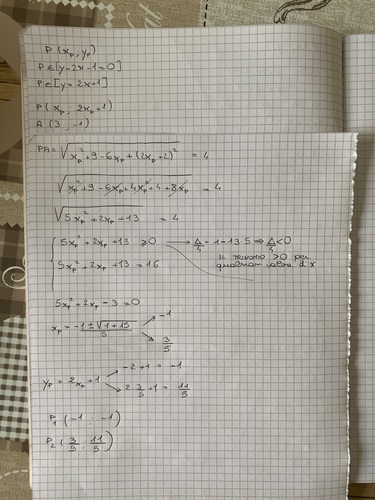 P (xₚ, yₚ)
P ∈ [y-2x-1=0]
P ∈ [y = 2x+1]
P (xₚ, 2xₚ+1)
A (3, -1)
PA = √(xₚ²+9-6xₚ+(2xₚ+2)²) = 4
√(xₚ²+9-6xₚ+4xₚ²+4+8xₚ) = 4
√(5xₚ²+2xₚ+13) = 4
{ 5xₚ²+2xₚ+13 ≥0 → Δ/4 = 1-13·5 ⇒ Δ/4 <0
il trinomio >0 per
qualsiasi valore di x
5xₚ²+2xₚ+13 = 16
5xₚ²+2xₚ-3=0
xₚ = (-1±√(1+15))/5 → -1
→ 3/5
yₚ = 2xₚ+1 → -2+1 = -1
→ 2·3/5+1 = 11/5
P₁ (-1; -1)
P₂ (3/5; 11/5)